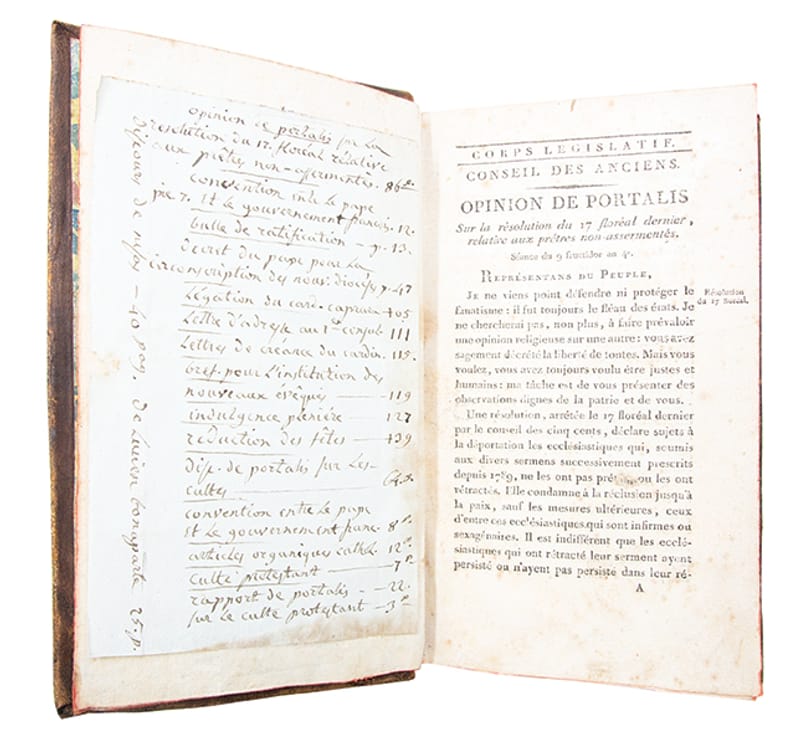 opinion de portalis sur la
resolution du 17. floréal rélative
aux prêtres non-assermentés. 86
convention entre le pape
et le gouvernement français. 12.
bulle de ratification — p. 13.
decret du pape pour la
circonscription des nouv. diocéses p. 47
Légation du card. caprara 105
Lettre d'adresse au 1er consul 111
Lettres de créance du cardin. 115.
bref. pour l'institution des
nouveaux évêques — 119
indulgence pleniére — 127
reduction des fêtes — 139
dis. de portalis sur les
cultes — 64.
convention entre le pape
et le gouvernement franc. 8
articles organiques cathol. 12
culte protestant — 7
rapport de portalis — 22.
sur le culte protestant — 3
discours de — 40 pag. de Lucien bonaparte 25. p.
CORPS LÉGISLATIF.
CONSEIL DES ANCIENS.
OPINION DE PORTALIS
Sur la résolution du 17 floréal dernier,
relative aux prêtres non-assermentés.
Séance du 9 fructidor an 4e.
REPRÉSENTANS DU PEUPLE,
Je ne viens point défendre ni protéger le
fanatisme : il fut toujours le fléau des états. Je
ne chercherai pas, non plus, à faire prévaloir
une opinion religieuse sur une autre : vous avez
sagement décrété la liberté de toutes. Mais vous
voulez, vous avez toujours voulu être justes et
humains : ma tâche est de vous présenter des
observations dignes de la patrie et de vous.
Une résolution, arrêtée le 17 floréal dernier
par le conseil des cinq cents, déclare sujets à
la déportation les ecclésiastiques qui, soumis
aux divers sermens successivement prescrits
depuis 1789, ne les ont pas ou les ont
rétractés. Elle condamne à la réclusion jusqu'à
la paix, sauf les mesures ultérieures, ceux
d'entre ces ecclésiastiques qui sont infirmes ou
sexagénaires. Il est indifférent que les ecclé-
siastiques qui ont rétracté leur serment ayent
persisté ou n'ayent pas persisté dans leur ré-
A
Résolution
du 17 floréal.